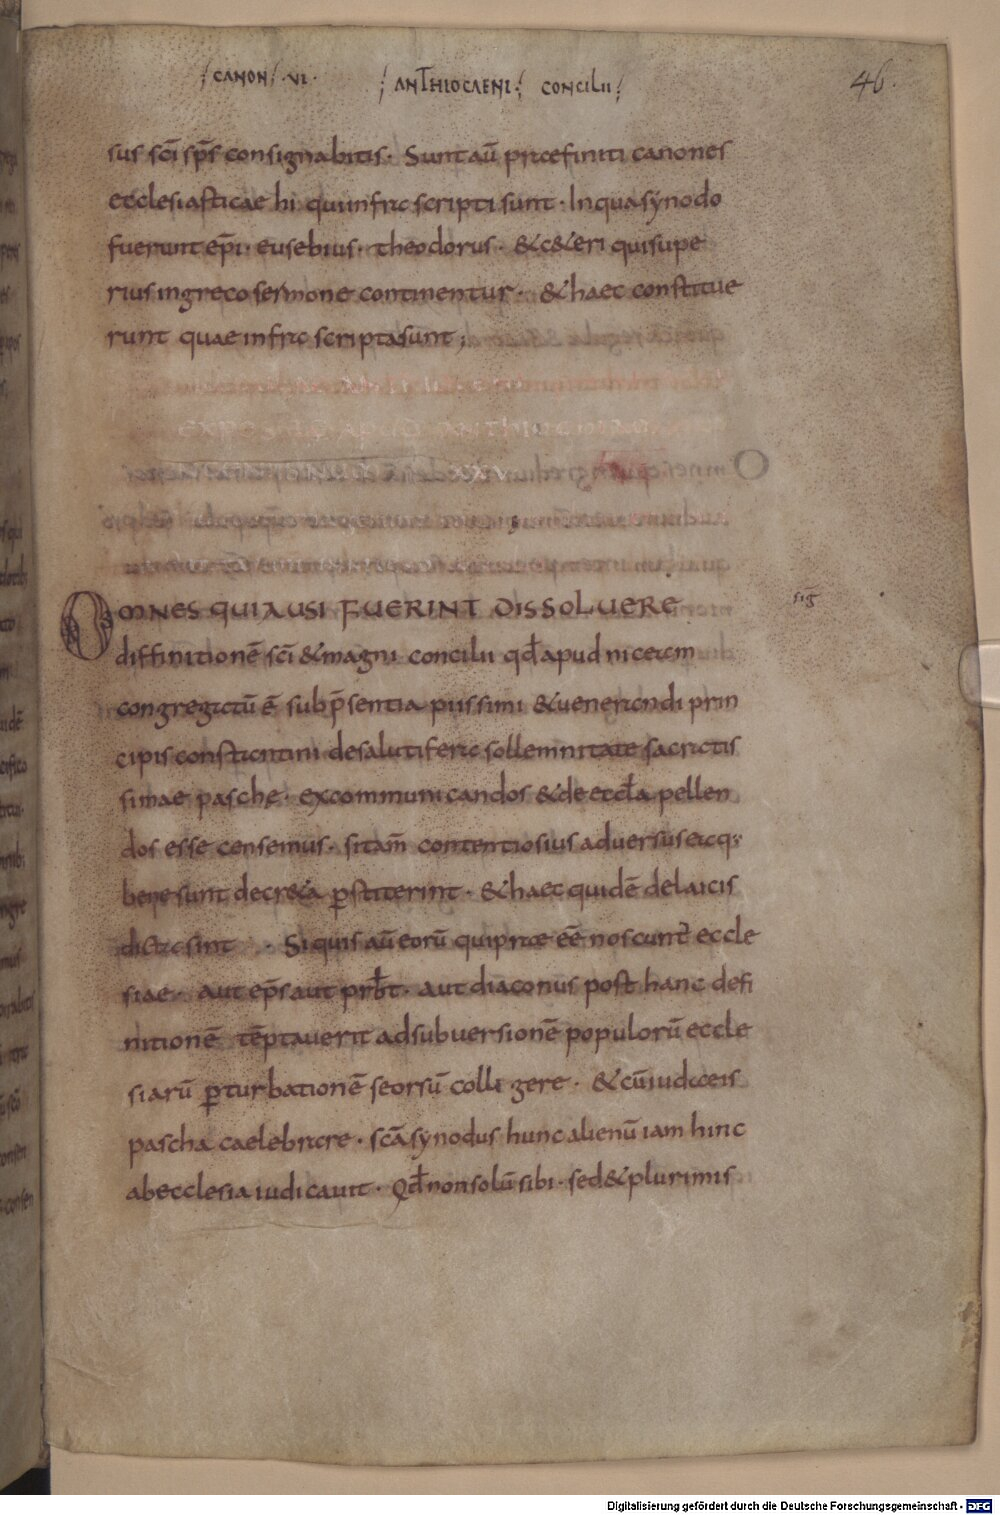 CANON · VI · ANTHIOCAENI · CONCILII
46.
sus sc̄i sp̄s consignabitis · Sunt aū praefiniti canones
ecclesiasticae hi qui infra scripti sunt · In qua synodo
fuerunt ep̄i · eusebius · theodorus · & c&eri qui supe
rius in greco sermone continentur · & haec constitue
runt quae infra scripta sunt ;
EXPOSITIO APUD ANTHIOCHIAM
OMNES QUI AUSI FUERINT DISSOLUERE
sig̅
diffinitionē sc̄i & magni concilii qd̄ apud niceam
congregatū ē sub p̄sentia piissimi & uenerandi prin
cipis constantini de salutifera sollemnitate sacratis
simae pasche · excommunicandos & de eccl̄a pellen
dos esse censemus · si tam̄ contentiosius aduersus ea q;
bene sunt decr&a ꝑstiterint · & haec quidē de laicis
dicta sint · Si quis aū eorū qui prae eē noscunt̄ eccle
siae · aut ep̄s aut prb̄t · aut diaconus post hanc defi
nitionē tēptauerit ad subuersionē populorū eccle
siarū ꝑturbationē seorsū colligere · & cū iudaeis
pascha caelebrare · sc̄a synodus hunc alienū iam hinc
ab ecclesia iudicauit · Qd̄ non solū sibi · sed & plurimis
Digitalisierung gefördert durch die Deutsche Forschungsgemeinschaft - DFG